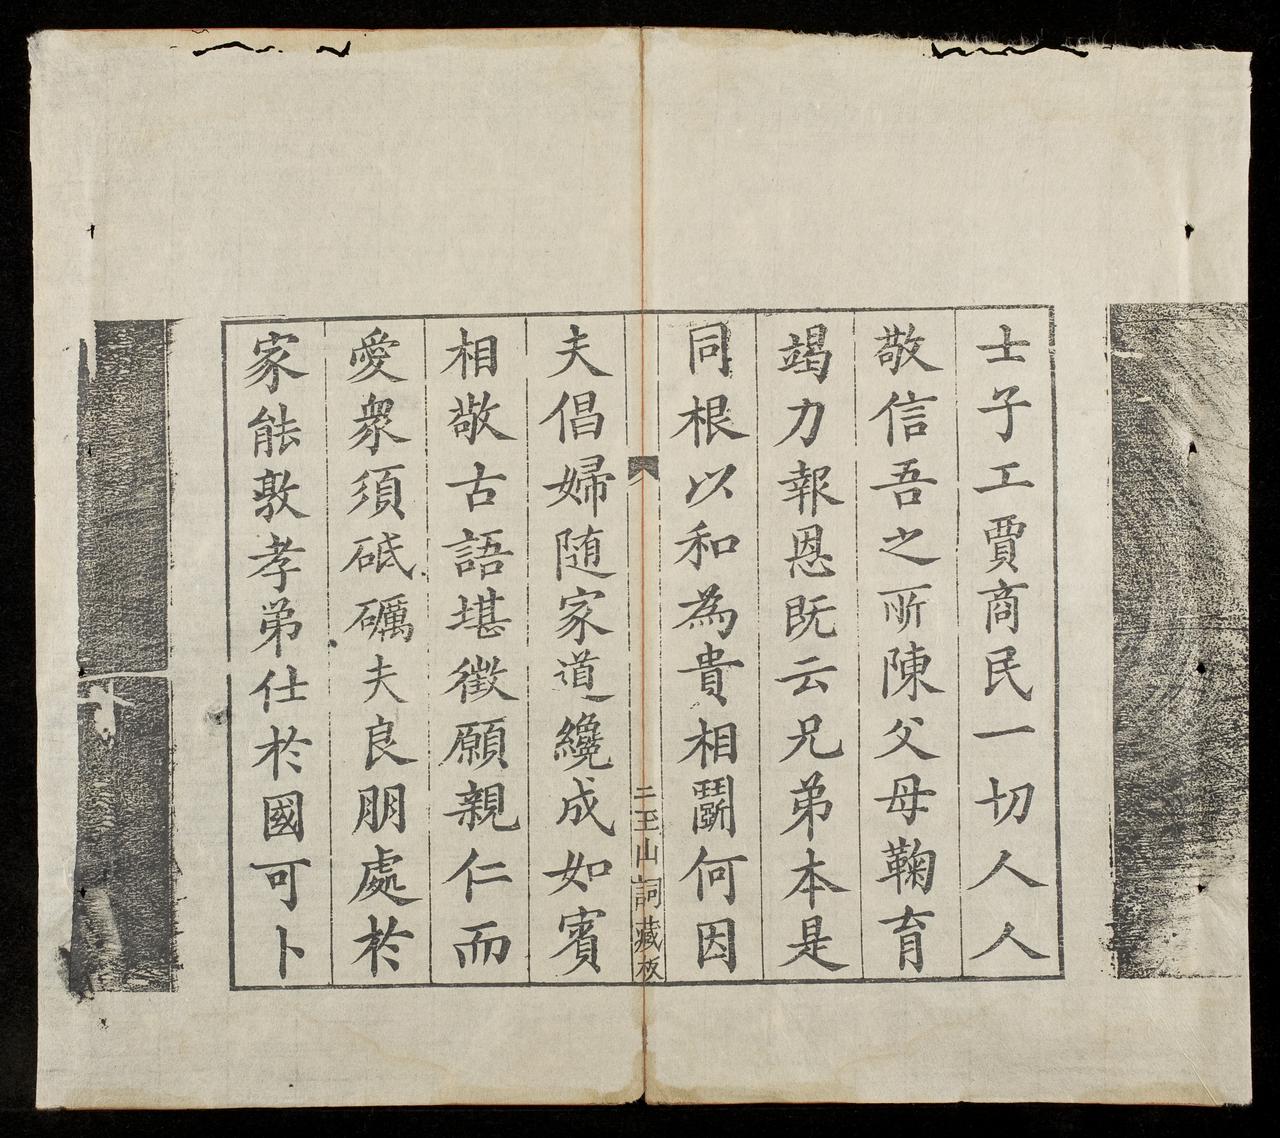 士子工賈商民一切人人
敬信吾之所陳父母鞠育
竭力報恩既云兄弟本是
同根以和為貴相鬬何因
二至山詞藏板
夫倡婦随家道纔成如賓
相敬古語堪徵願親仁而
愛衆須砥礪夫良朋處於
家能敦孝弟仕於國可卜